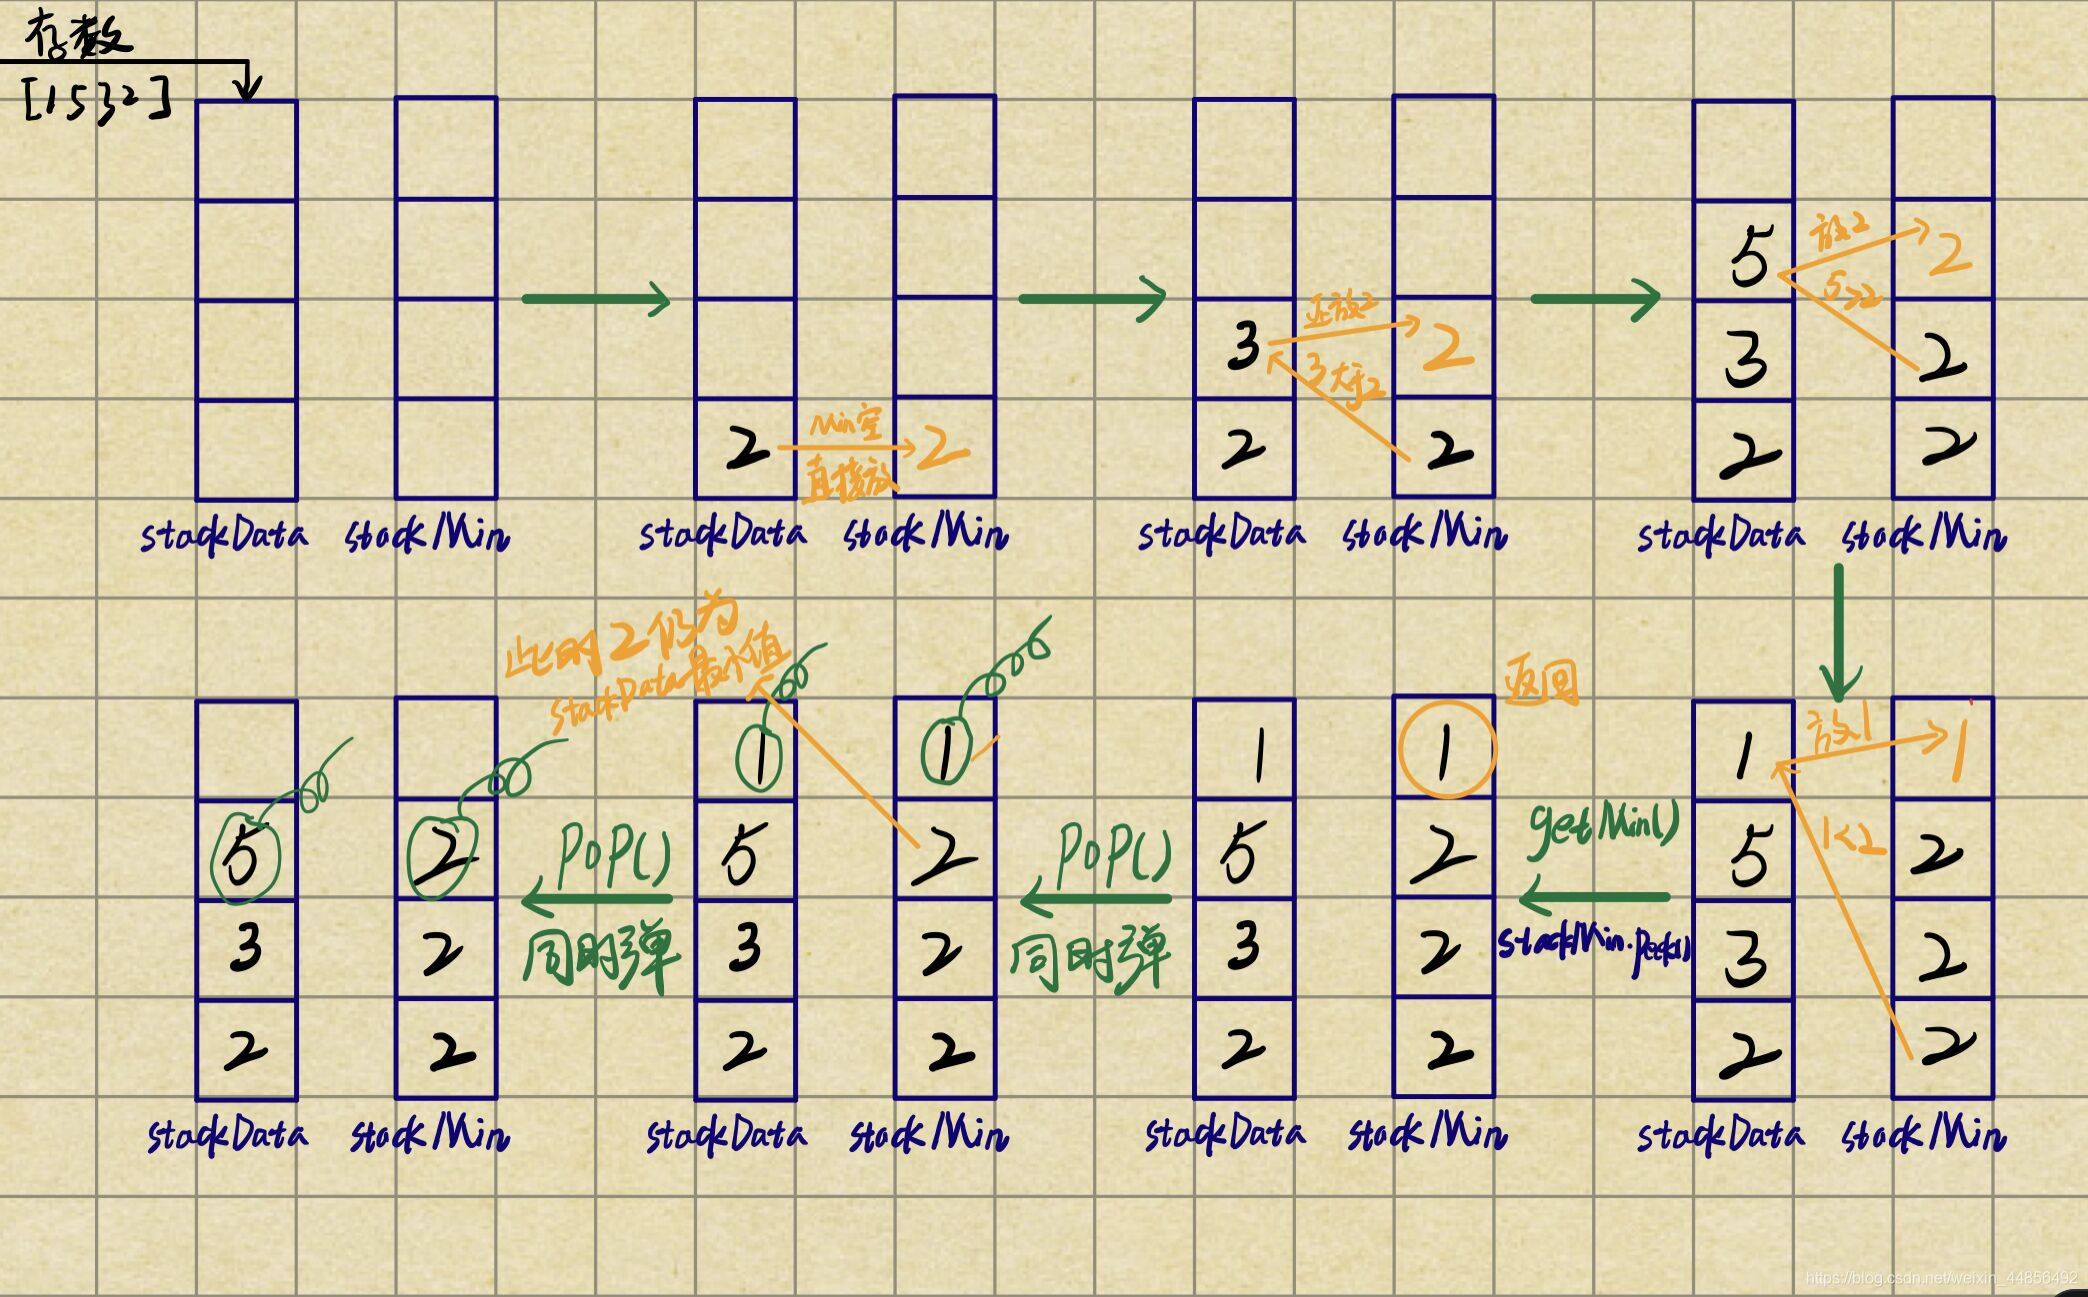 存数
[1 5 3 2]
Min空
直接放
2
2
还放2
3大于2
3
2
2
2
放2
5>2
5
2
3
2
2
2
stackData
stackMin
stackData
stackMin
stackData
stackMin
stackData
stackMin
此时2仍为
stackData最小值
返回
放1
1<2
5
2
3
2
2
2
POP()
同时弹
1
1
5
2
3
2
2
2
POP()
同时弹
1
1
5
2
3
2
2
2
getMin()
stackMin.peek()
1
1
5
2
3
2
2
2
stackData
stackMin
stackData
stackMin
stackData
stackMin
stackData
stackMin
https://blog.csdn.net/weixin_44856492